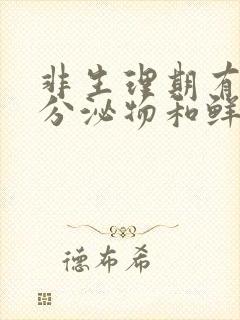 非生理期有
分泌物和鲜
德布希